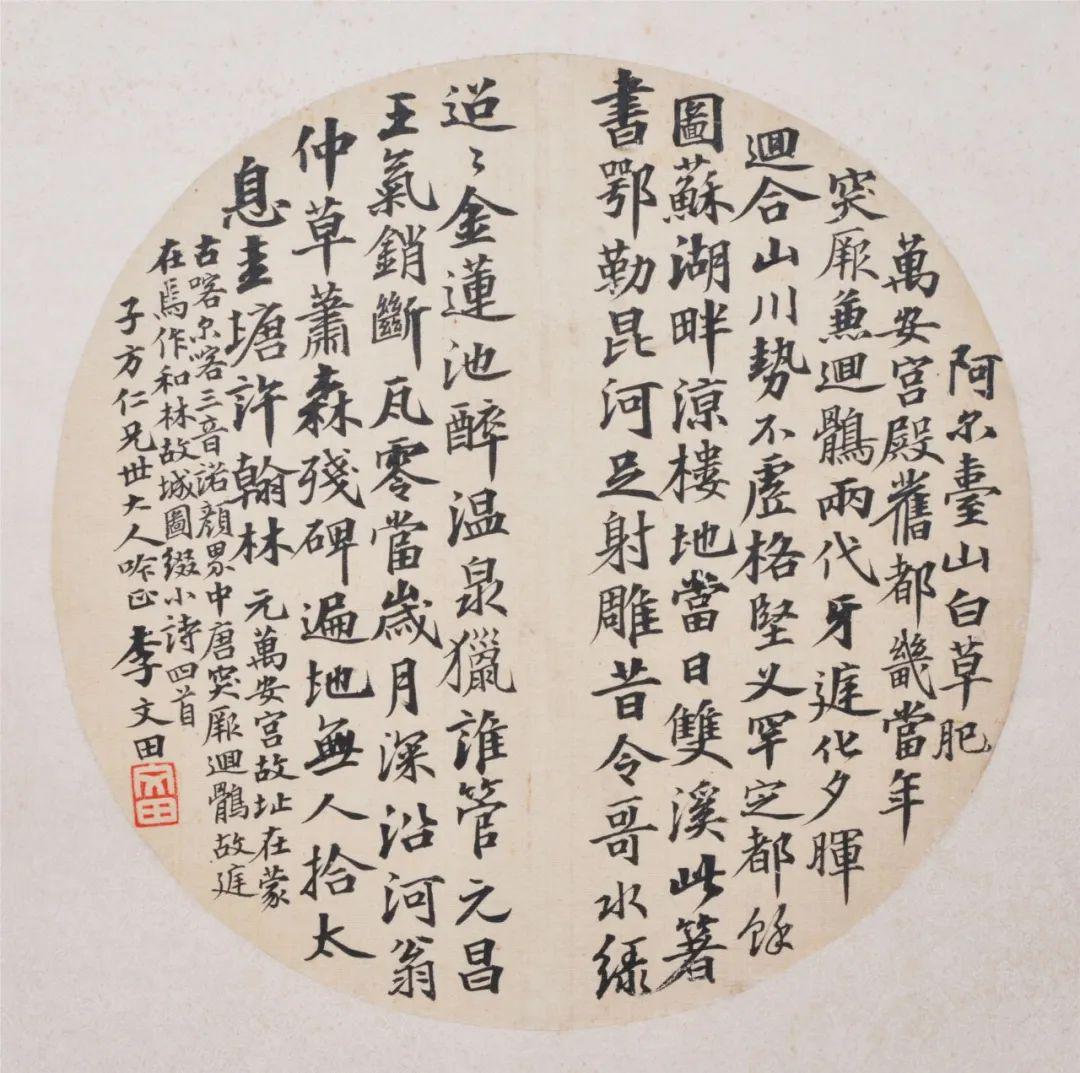 阿尔臺山白草肥
萬安宮殿舊都畿當年
突厥兼迴鶻兩代牙庭化夕暉
迴合山川勢不虛格堅乂罕定都餘
圖蘇湖畔涼樓地當日雙溪此著
書鄂勒昆河足射雕昔令哥水綠
迢〻金蓮池醉温泉獵誰管元昌
王氣銷斷瓦零當歲月深沿河翁
仲草蕭森殘碑遍地無人拾太
息圭塘許翰林 元萬安宮故址在蒙
古喀尔喀三音诺顏界中唐突厥迴鶻故庭
在焉作和林故城圖綴小詩四首
子方仁兄世大人吟正 李文田
文田